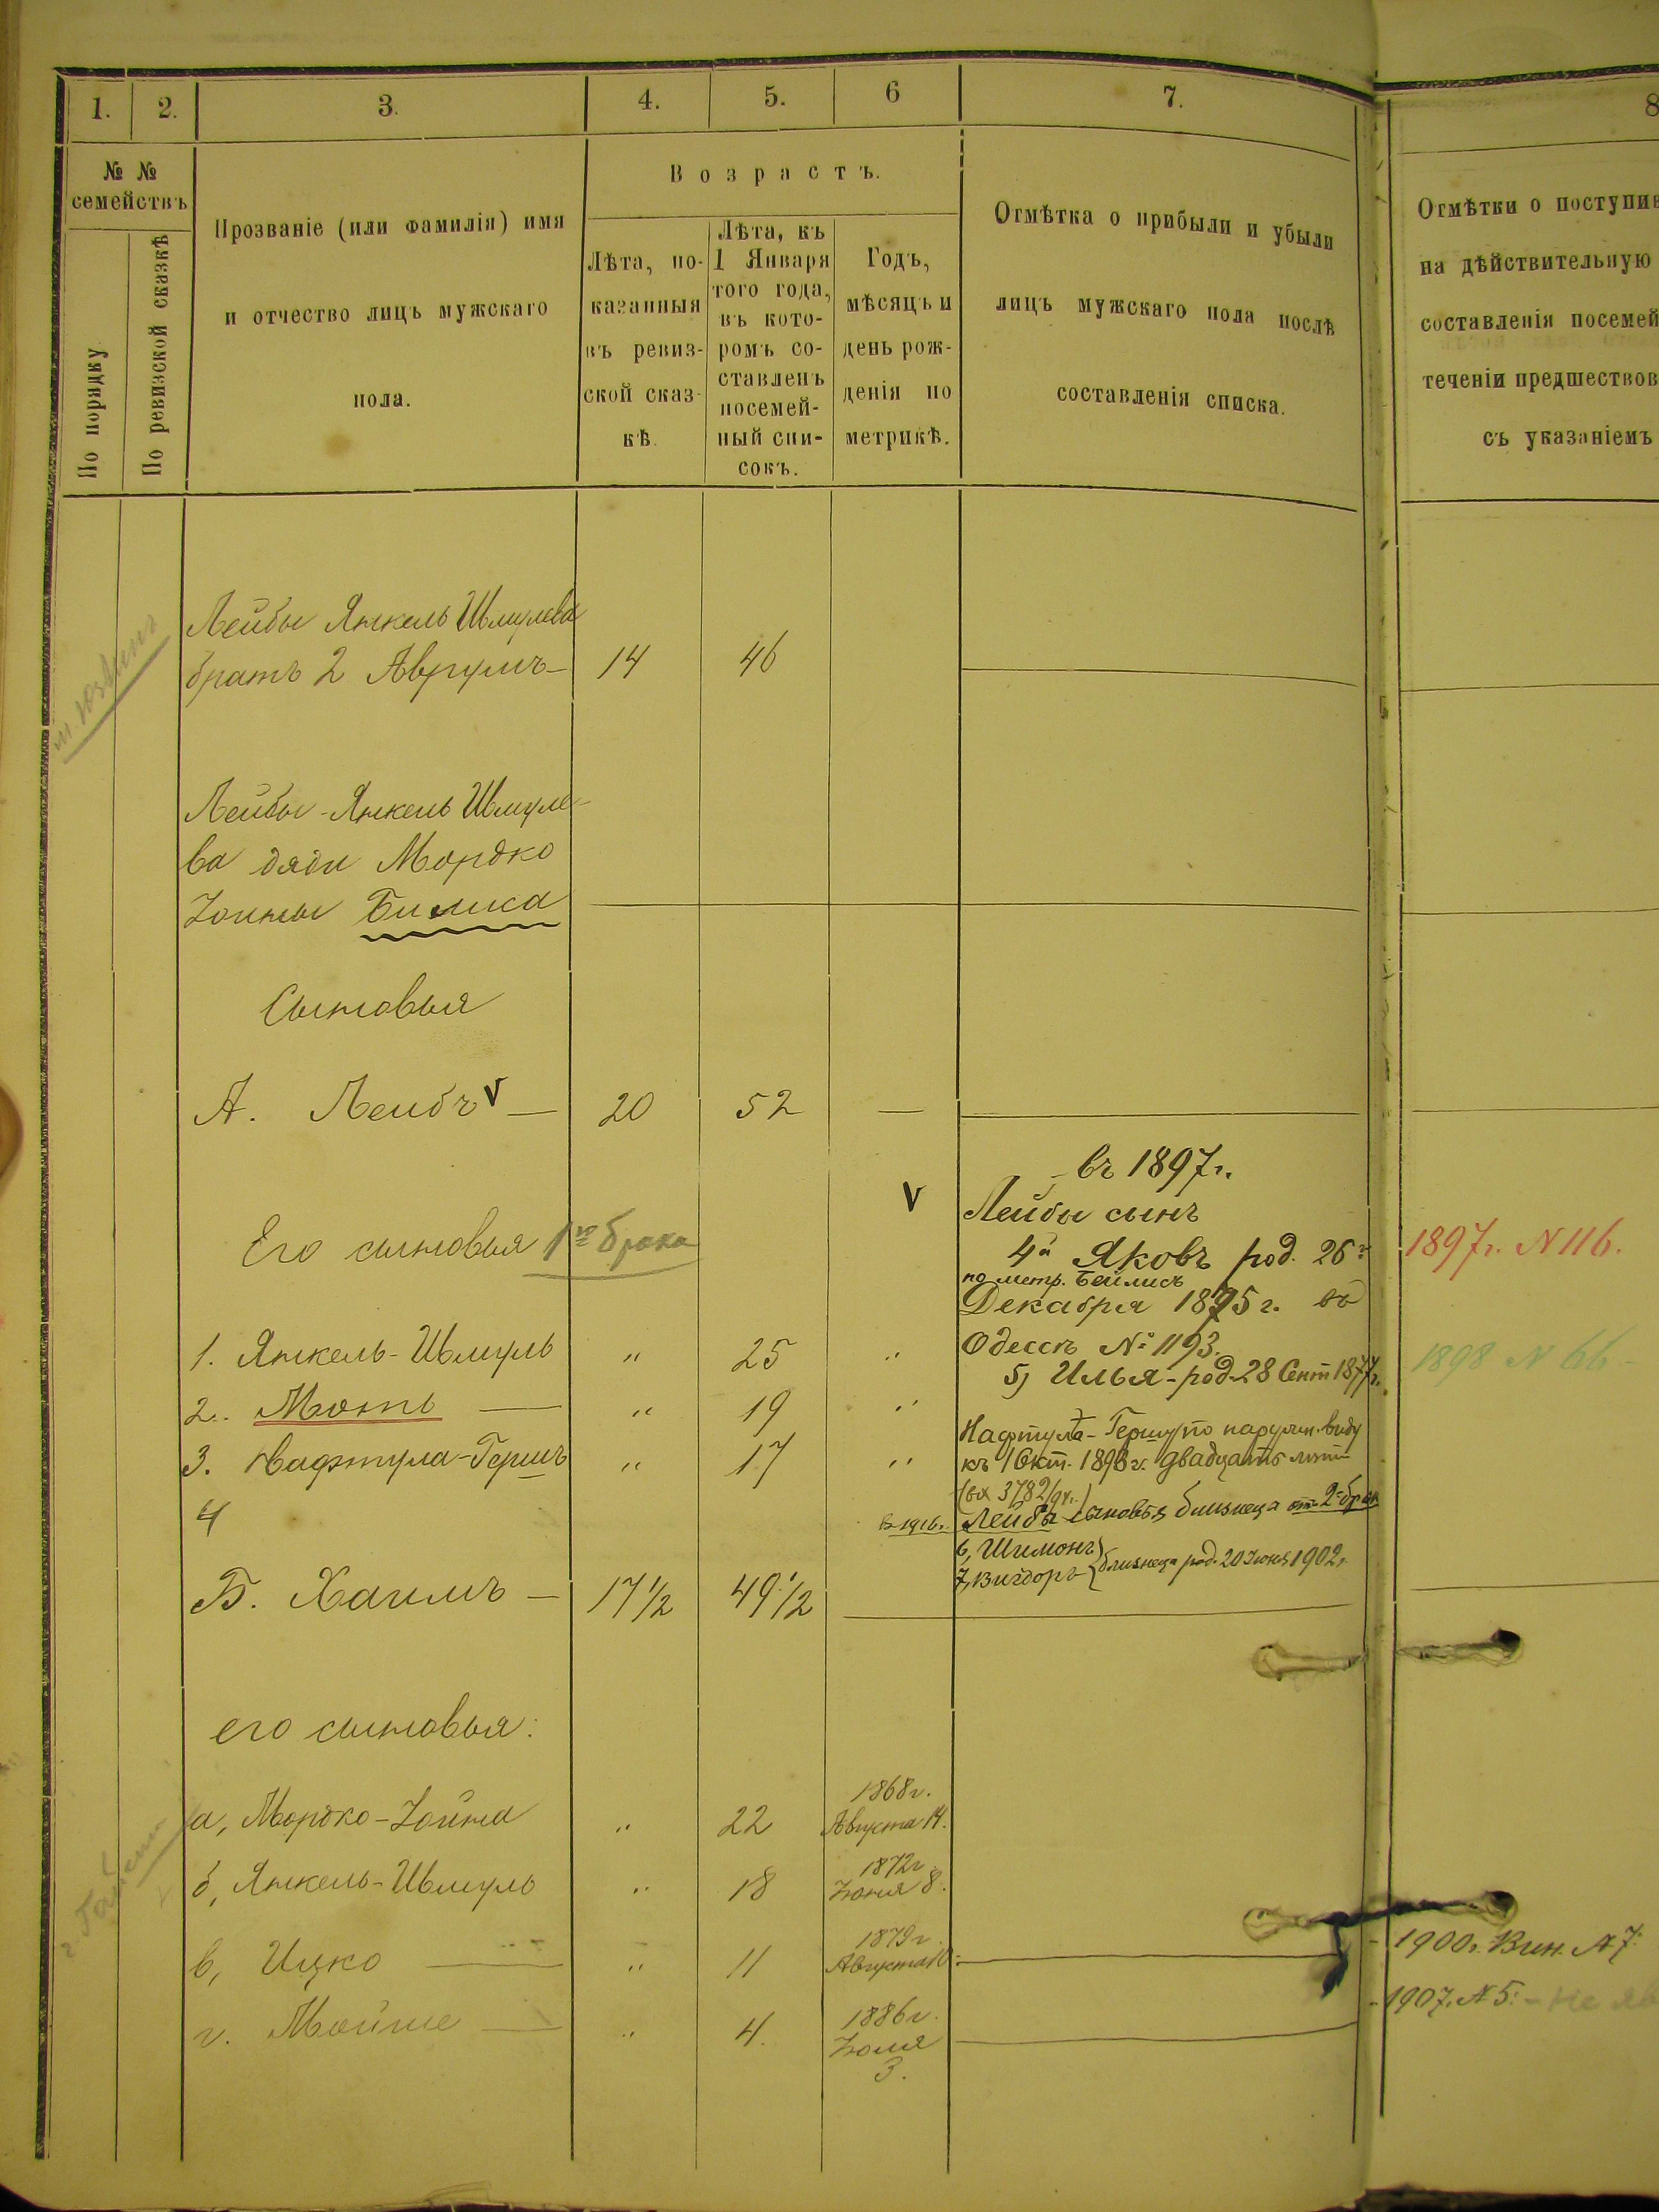 1. 2. 3. 4. 5. 6 7. 8
№ № семействъ
По порядку
По ревизской сказкѣ
Прозваніе (или фамилія) имя
и отчество лицъ мужскаго
пола.
Возрастъ.
Лѣта, по-
казанныя
въ ревиз-
ской сказ-
кѣ.
Лѣта, къ
1 Января
того года,
въ кото-
ромъ со-
ставленъ
посемей-
ный спи-
сокъ.
Годъ,
мѣсяцъ и
день рож-
денія по
метрикѣ.
Отмѣтка о прибыли и убыли
лицъ мужскаго пола послѣ
составленія списка.
Отмѣтки о поступив
на дѣйствительную
составленія посемей
теченіи предшествов
съ указаніемъ
Лейбы Янкель Шмулева
братъ 2 Аврумъ — 14 46
Лейбы-Янкель Шмуле-
ва дяди Мордко
Іойны Билиса
Сыновья
А. Лейбъ V — 20 52 —
въ 1897 г.
V Лейбы сынъ
Его сыновья 1го брака
4й Яковъ род. 26го
по метр. Бейлисъ
Декабря 1875 г. въ
Одессѣ № 1193.
1897 г. N 116.
1. Янкель-Шмуль " 25 "
5) Илья - род. 28 Сент 1877 г.
1898 N 66 -
2. Моть — " 19 "
3. Нафтула-Гершъ " 17 "
Нафтула-Гершу по наружн. виду
къ 1 Окт. 1893 г. двадцать лѣтъ
(вх 3782/94.)
4
въ 1916 г. Лейбы сыновья близнеца отъ 2го брака
6, Шимонъ
7, Вигдоръ } близнеца род. 20 Іюня 1902 г.
Б. Хаимъ — 17 1/2 49 1/2
его сыновья:
а, Мордко-Іойна " 22 1868 г. Августа 14.
б, Янкель-Шмуль " 18 1872 г Іюня 8.
в, Ицко — " 11 1879 г. Августа 10
- 1900 г. Вин. N 7:
- 1907. N 5: - не яв
г. Мойше — " 4. 1886 г. Іюля 3.